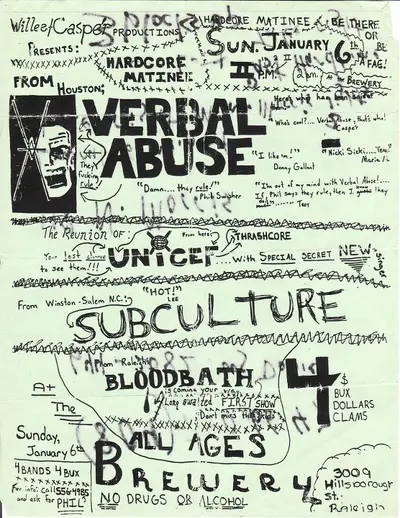 Willee/Casper PRODUCTIONS
PRESENTS:
HARDCORE MATINEE
HARDCORE MATINEE BE THERE
OR
BE
A FAG!
SUN. JANUARY 6th
II P.M. 2 p.m. At the BREWERY
FROM HOUSTON;
VERBAL
ABUSE
They
fucking
rule
"What's cool?... Verbal Abuse, that's who!
Casper
"I like 'm."
Danny Gallant
"Damn.... they rule!"
Phil Swisher
"I'm out of my mind with Verbal Abuse!...
If Phil says they rule, then I guess they
do!
The Reunion of:
From here!
UNICEF
THRASHCORE
Your last chance
to see them!!!
...With SPECIAL SECRET NEW singer
From Winston-Salem N.C.:
"HOT!"
LEE
SUBCULTURE
From Raleigh
BLOODBATH
is coming your way
Long awaited FIRST SHOW
Don't miss
4 $
BUX
DOLLARS
CLAMS
At
The
ALL AGES
BREWERY
Sunday,
January 6th
4 BANDS 4 BUX
For info: call 556-4985
and ask for PHIL
NO DRUGS OR ALCOHOL
3009
Hillsborough
St.
Raleigh